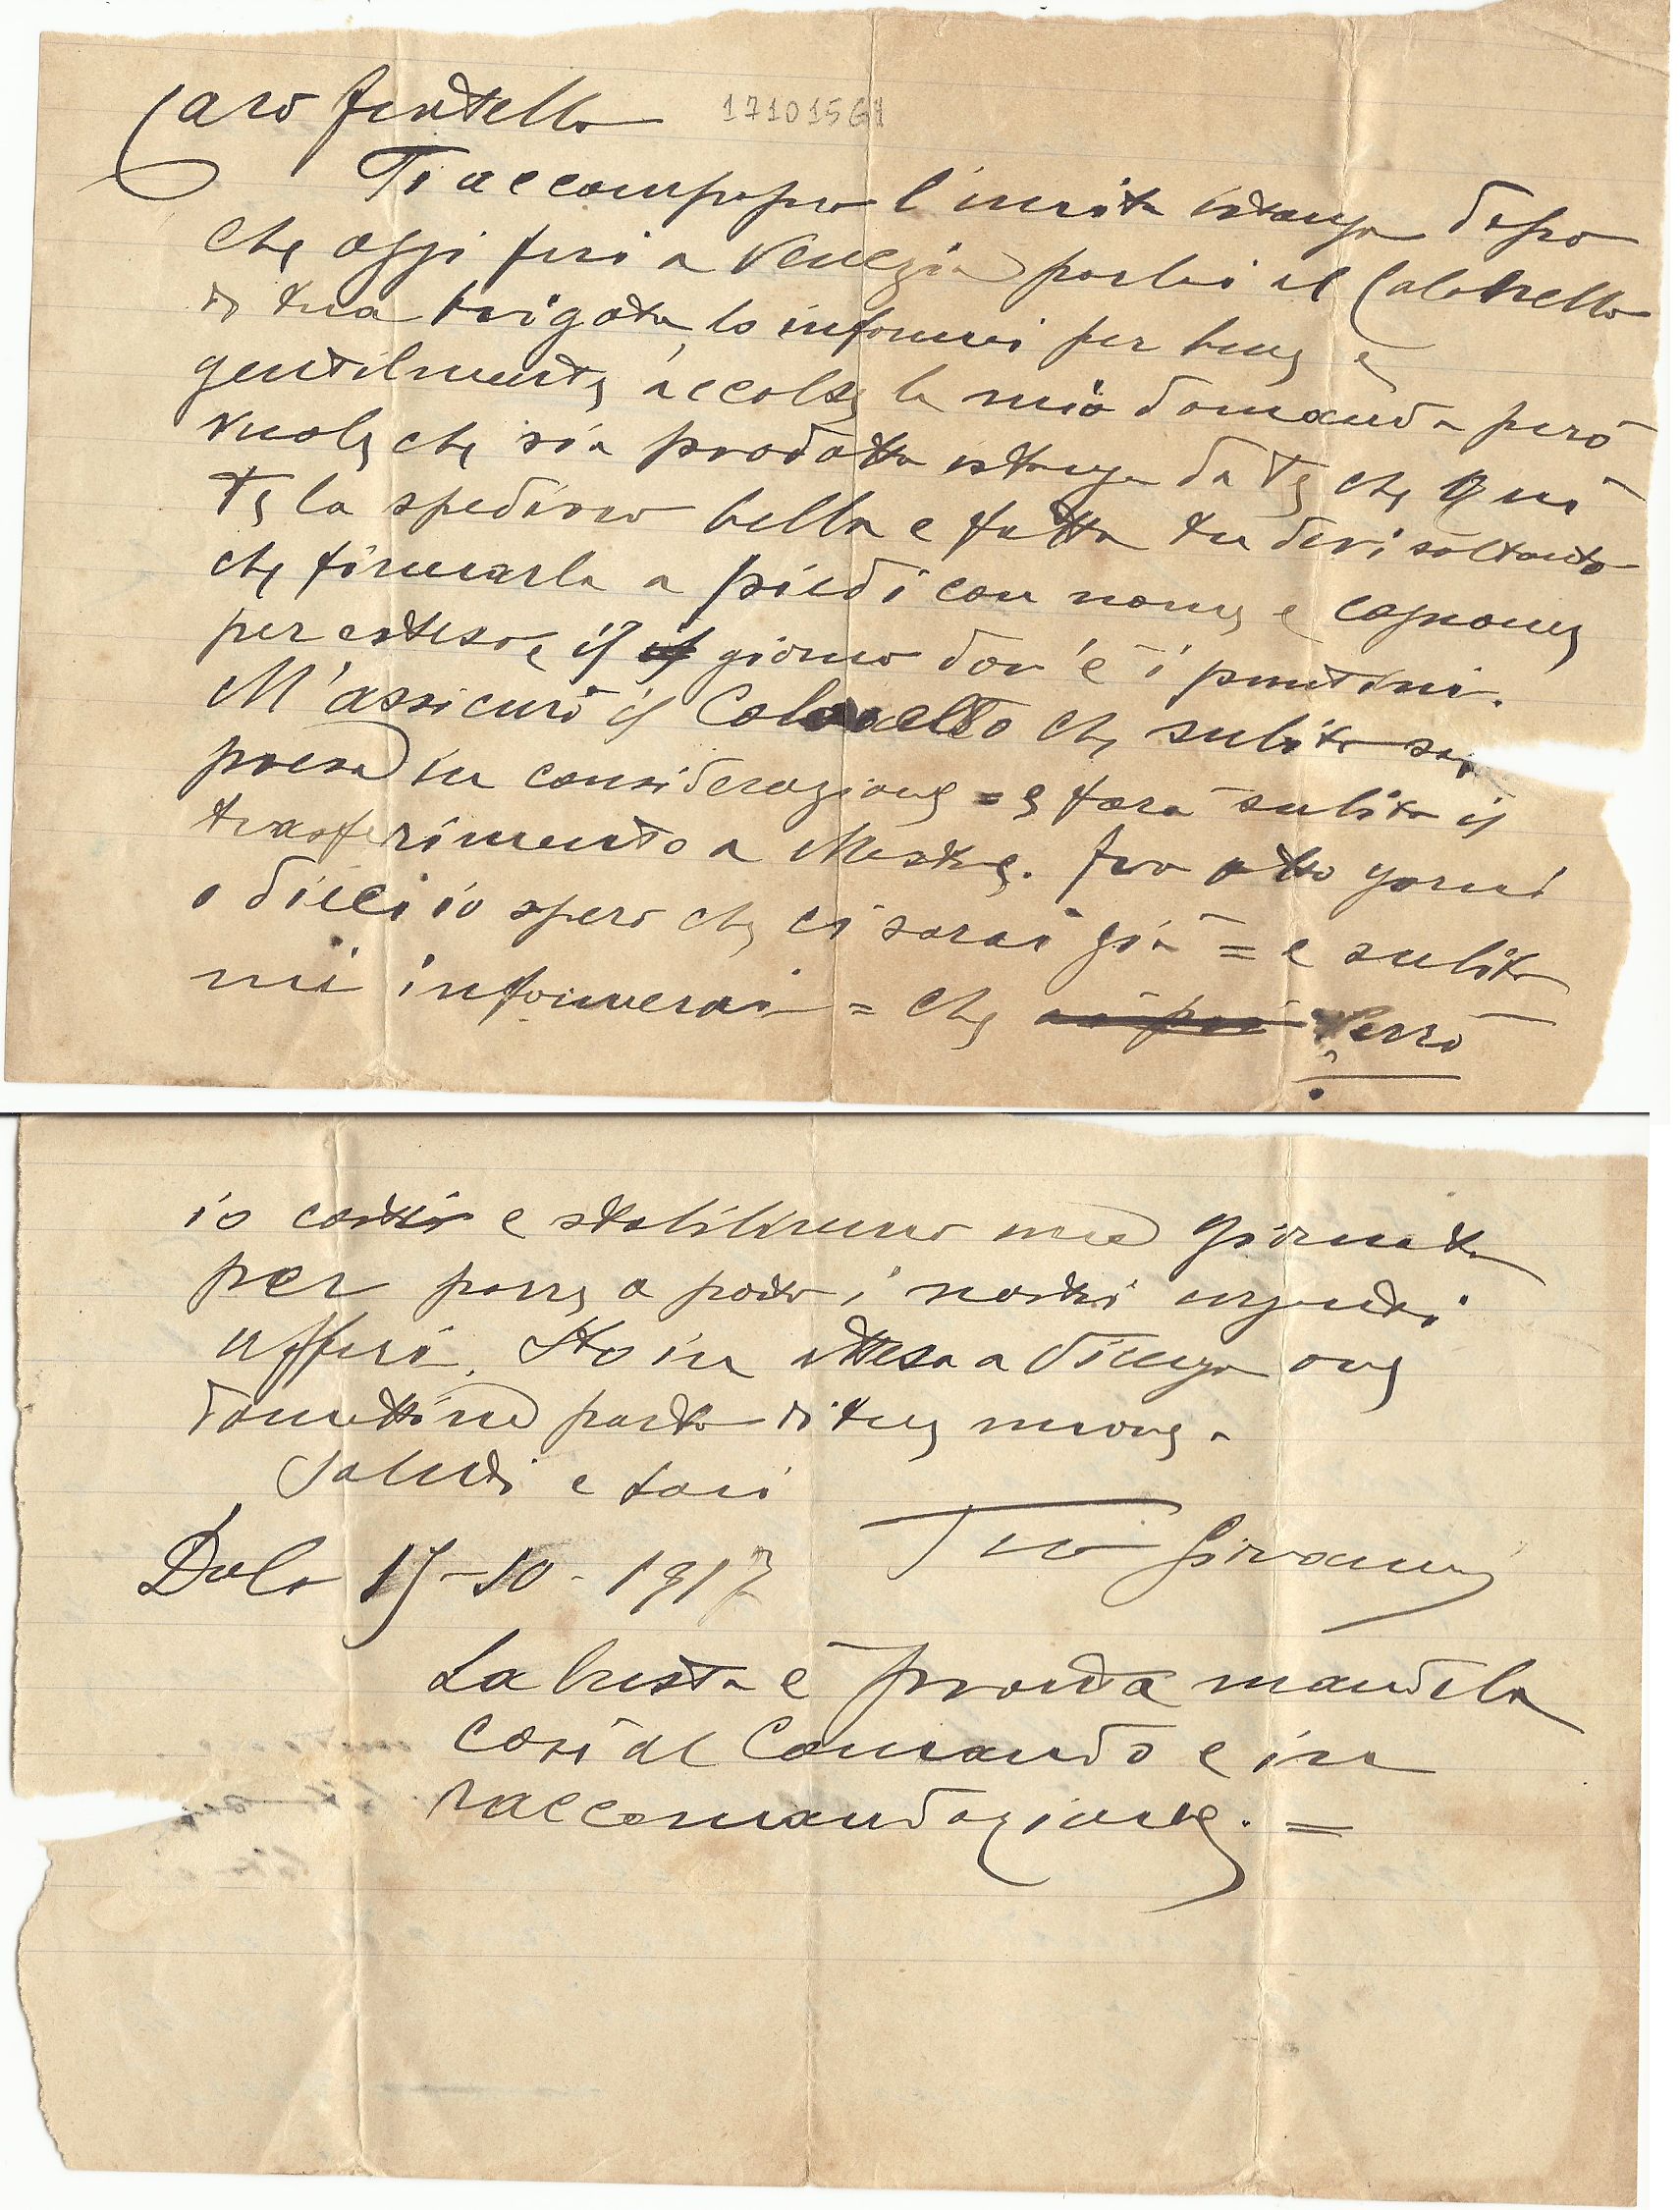 Caro fratello 17101561
Ti accompagno l'unita istanza dopo
che oggi fui a Venezia parlai al Colonello
di tua brigata, lo informai per bene e
gentilmente accolse la mia domanda però
vuole che sia prodotta istanza da te che qui
te la spedisco bella e fatta tu devi soltanto
che firmarla a piedi con nome e cognome
per esteso, e il giorno dov'è i puntini.
M'assicurò il Colonello che subito sarà
presa in considerazione = e farà subito il
trasferimento a Mestre. Fra otto giorni
o dieci io spero che ci sarai già = e subito
mi informerai = che verrò
io costì e stabiliremo una giornata
per porre a posto i nostri urgenti
affari. Sto in attesa a Vicenza ove
domattina parto di tue nuove.
Saluti e baci
Tuo Giovanni
Dolo 17-10-1917
La busta è pronta mandila
così al Comando e in
raccomandazione. =